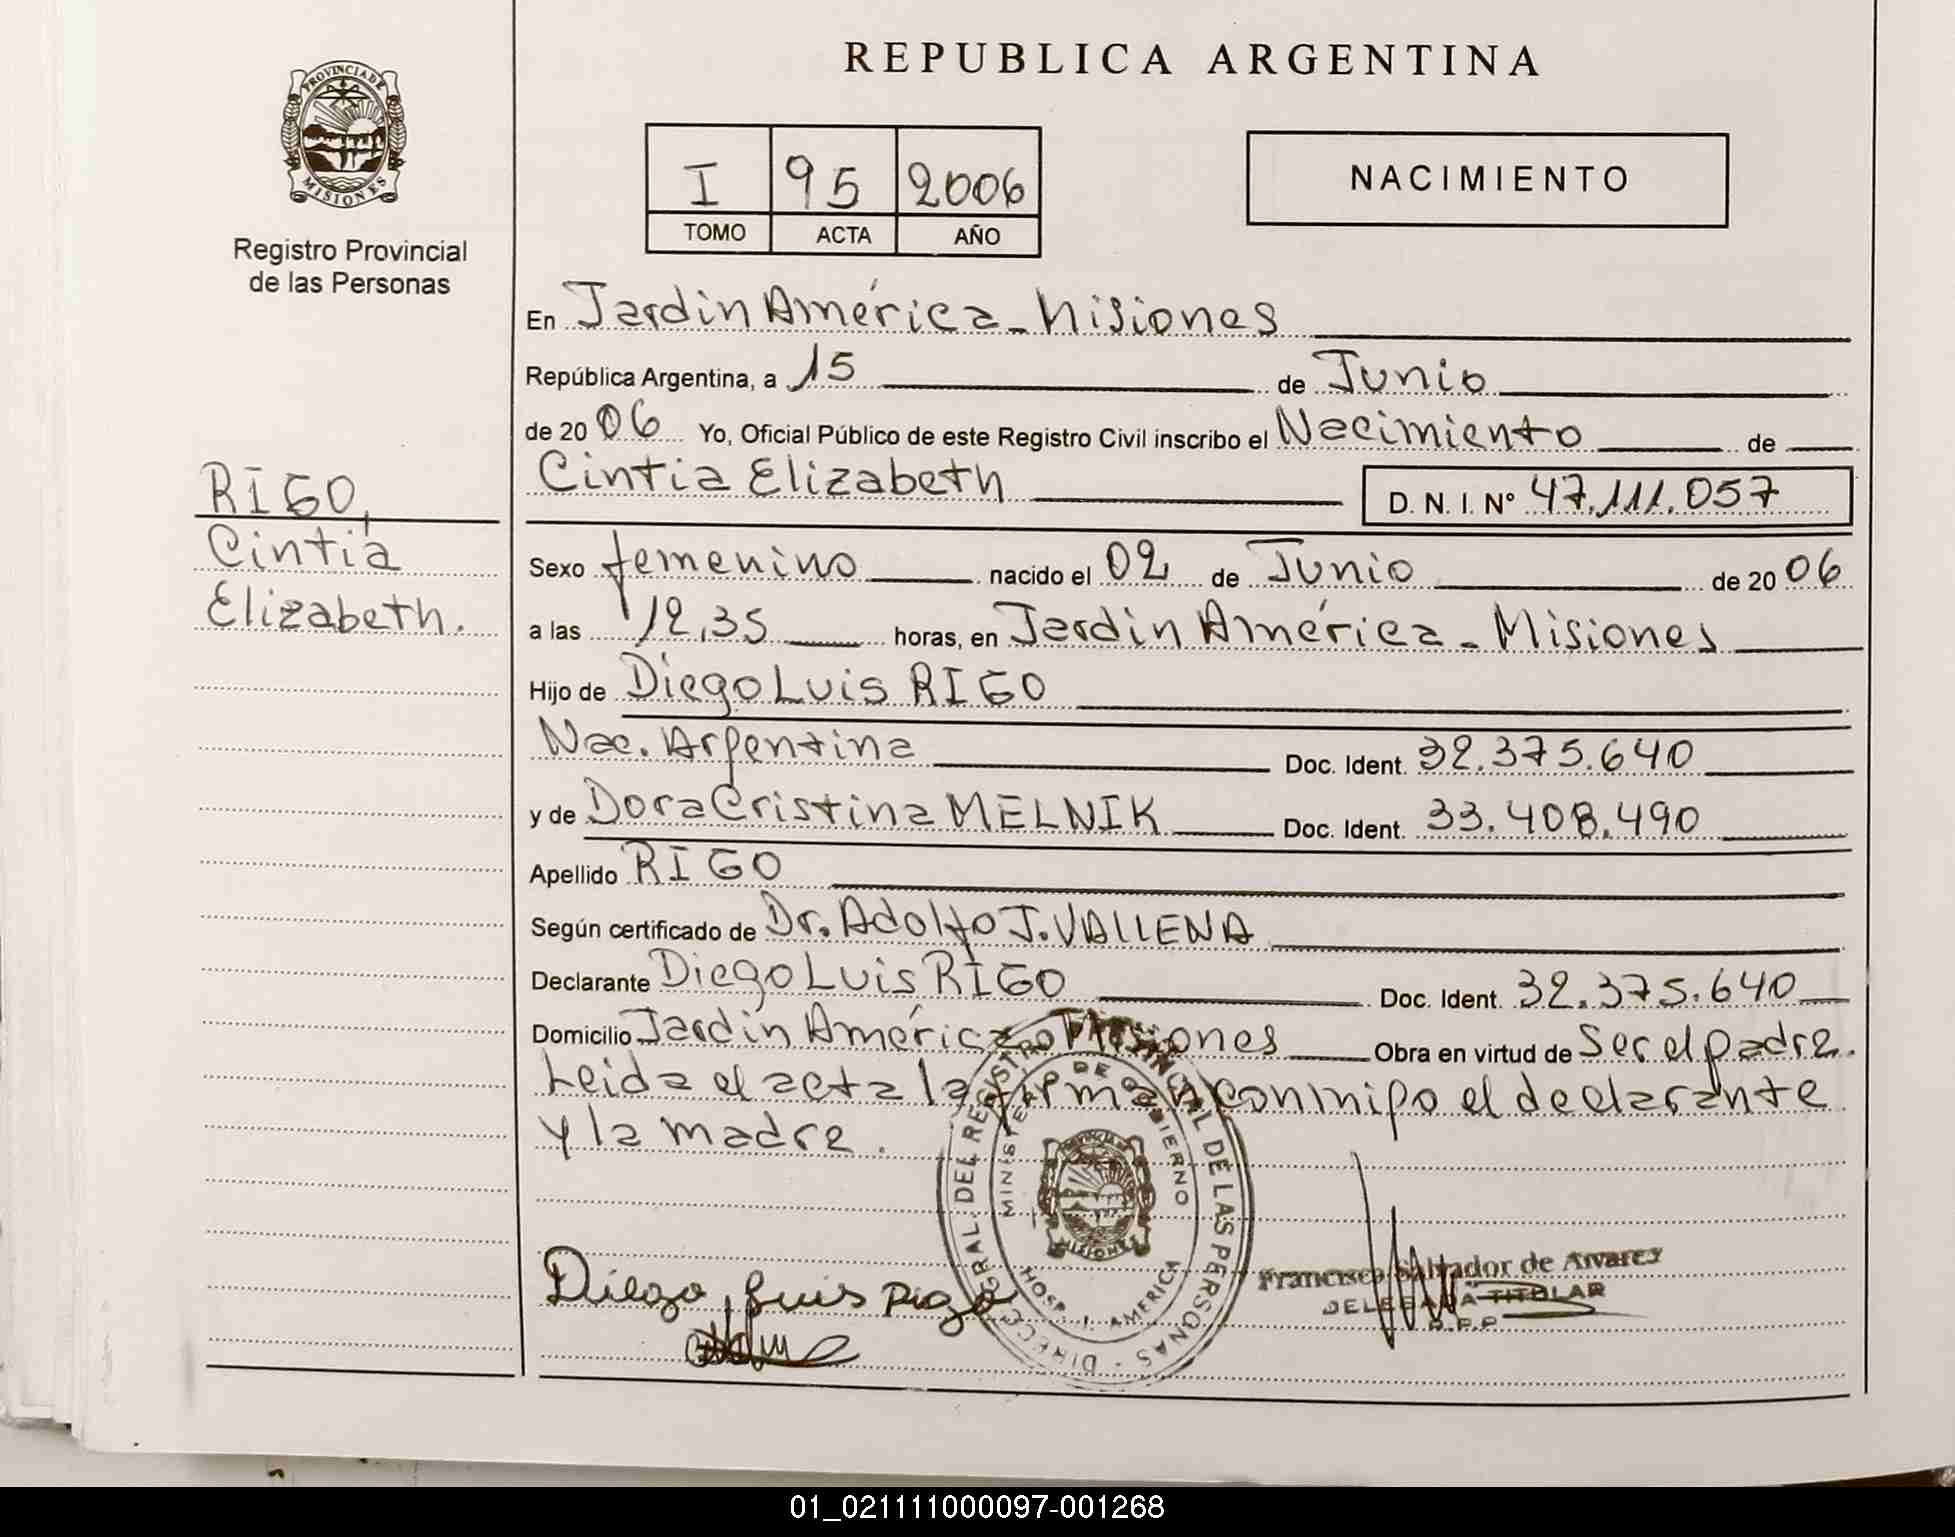 REPUBLICA ARGENTINA
PROVINCIA DE
MISIONES
Registro Provincial
de las Personas
I 95 2006
TOMO ACTA AÑO
NACIMIENTO
En Jardín América - Misiones
República Argentina, a 15 de Junio
de 2006 Yo, Oficial Público de este Registro Civil inscribo el Nacimiento de
Cintia Elizabeth D. N. I. Nº 47.111.057
RIGO,
Cintia
Elizabeth.
Sexo femenino nacido el 02 de Junio de 2006
a las 12,35 horas, en Jardín América - Misiones
Hijo de Diego Luis RIGO
Nac. Argentina Doc. Ident. 32.375.640
y de Dora Cristina MELNIK Doc. Ident. 33.408.490
Apellido RIGO
Según certificado de Dr. Adolfo J. VALLENA
Declarante Diego Luis RIGO Doc. Ident. 32.375.640
Domicilio Jardín América Misiones Obra en virtud de Ser el padre.
Leida el acta la firman conmigo el declarante
y la madre.
DIRECC. GRAL. DEL REGISTRO PROVINCIAL DE LAS PERSONAS
MINISTERIO DE GOBIERNO
HOSP. J. AMERICA
PROVINCIA DE
MISIONES
Diego Luis Rigo
Francisco Salvador de Alvarez
TITULAR
R.P.P.
01_021111000097-001268